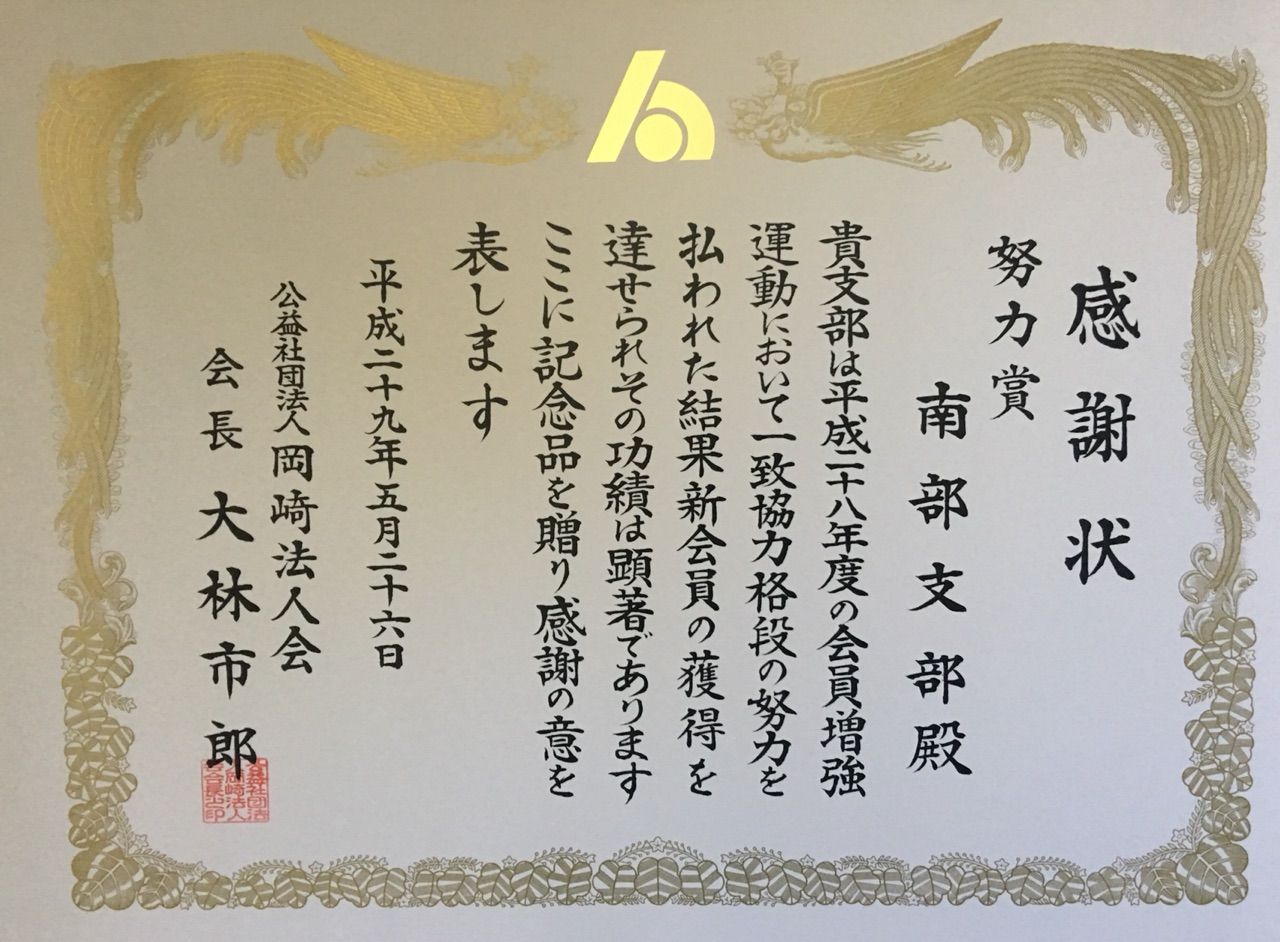 感謝状
努力賞
南部支部殿
貴支部は平成二十八年度の会員増強
運動において一致協力格段の努力を
払われた結果新会員の獲得を
達せられその功績は顕著であります
ここに記念品を贈り感謝の意を
表します
平成二十九年五月二十六日
公益社団法人岡崎法人会
会長 大林市郎